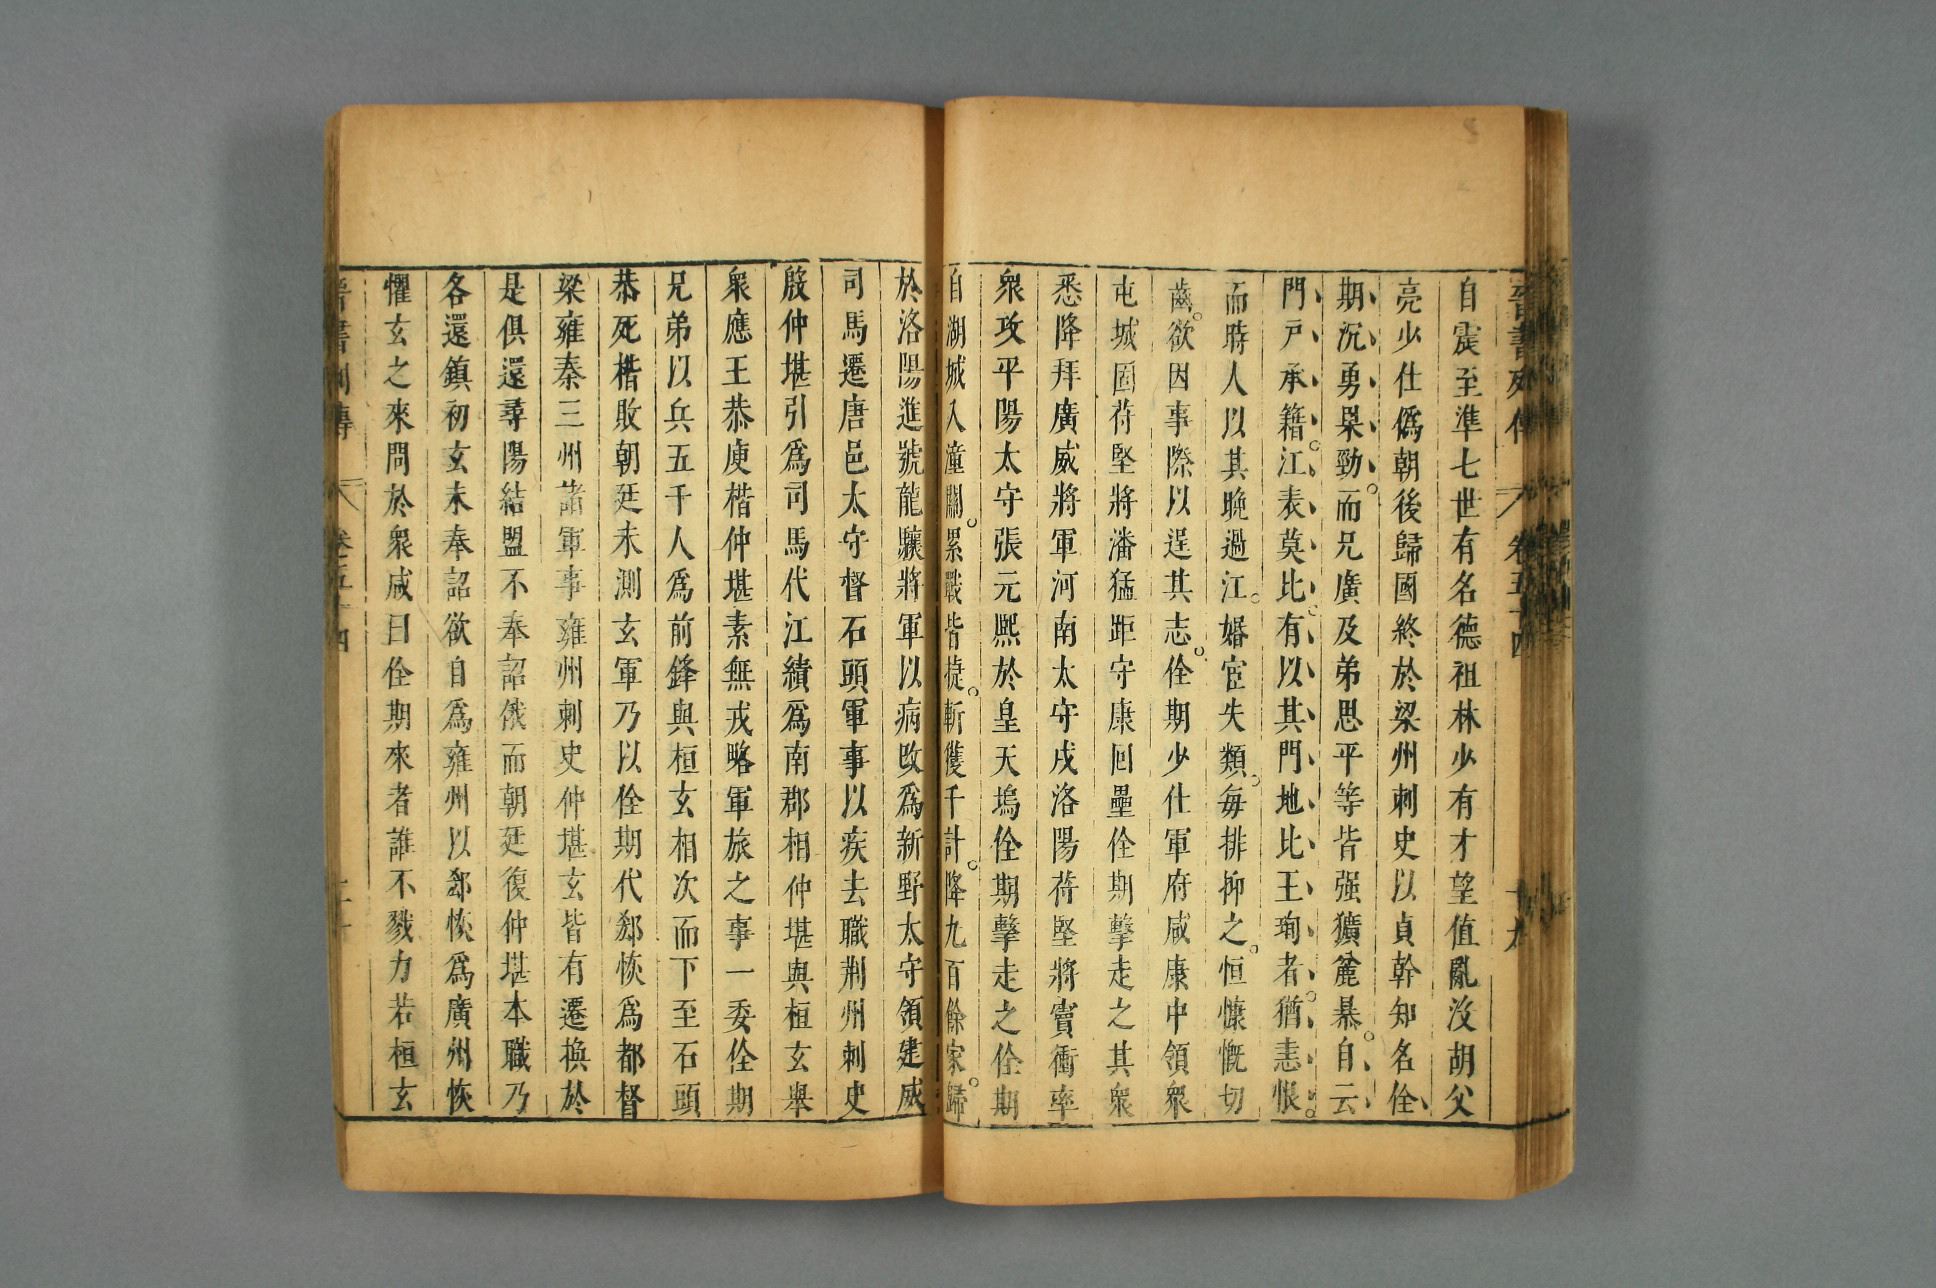 晉書列傳 卷五十四 十九
自震至準七世有名德祖林少有才望値亂没胡父
亮少仕僞朝後歸國終於梁州刺史以貞幹知名佺
期沉勇果勁而兄廣及弟思平等皆强獷麄暴自云
門戸承籍江表莫比有以其門地比王珣者猶恚恨
而時人以其晚過江婚宦失類每排抑之恒慷慨切
齒欲因事際以逞其志佺期少仕軍府咸康中領衆
屯城固苻堅將潘猛距守康囘壘佺期擊走之其衆
悉降拜廣威將軍河南太守戍洛陽苻堅將竇衝率
衆攻平陽太守張元熙於皇天塢佺期擊走之佺期
自湖城入潼關累戰皆捷斬獲千計降九百餘家歸
於洛陽進號龍驤將軍以病改爲新野太守領建威
司馬遷唐邑太守督石頭軍事以疾去職荆州刺史
殷仲堪引爲司馬代江績爲南郡相仲堪與桓玄舉
衆應王恭庾楷仲堪素無戎略軍旅之事一委佺期
兄弟以兵五千人爲前鋒與桓玄相次而下至石頭
恭死楷敗朝廷未測玄軍乃以佺期代郄恢爲都督
梁雍秦三州諸軍事雍州刺史仲堪玄皆有遷換於
是俱還尋陽結盟不奉詔俄而朝廷復仲堪本職乃
各還鎮初玄未奉詔欲自爲雍州以郄恢爲廣州恢
懼玄之來問於衆咸曰佺期來者誰不戮力若桓玄
晉書列傳 卷五十四